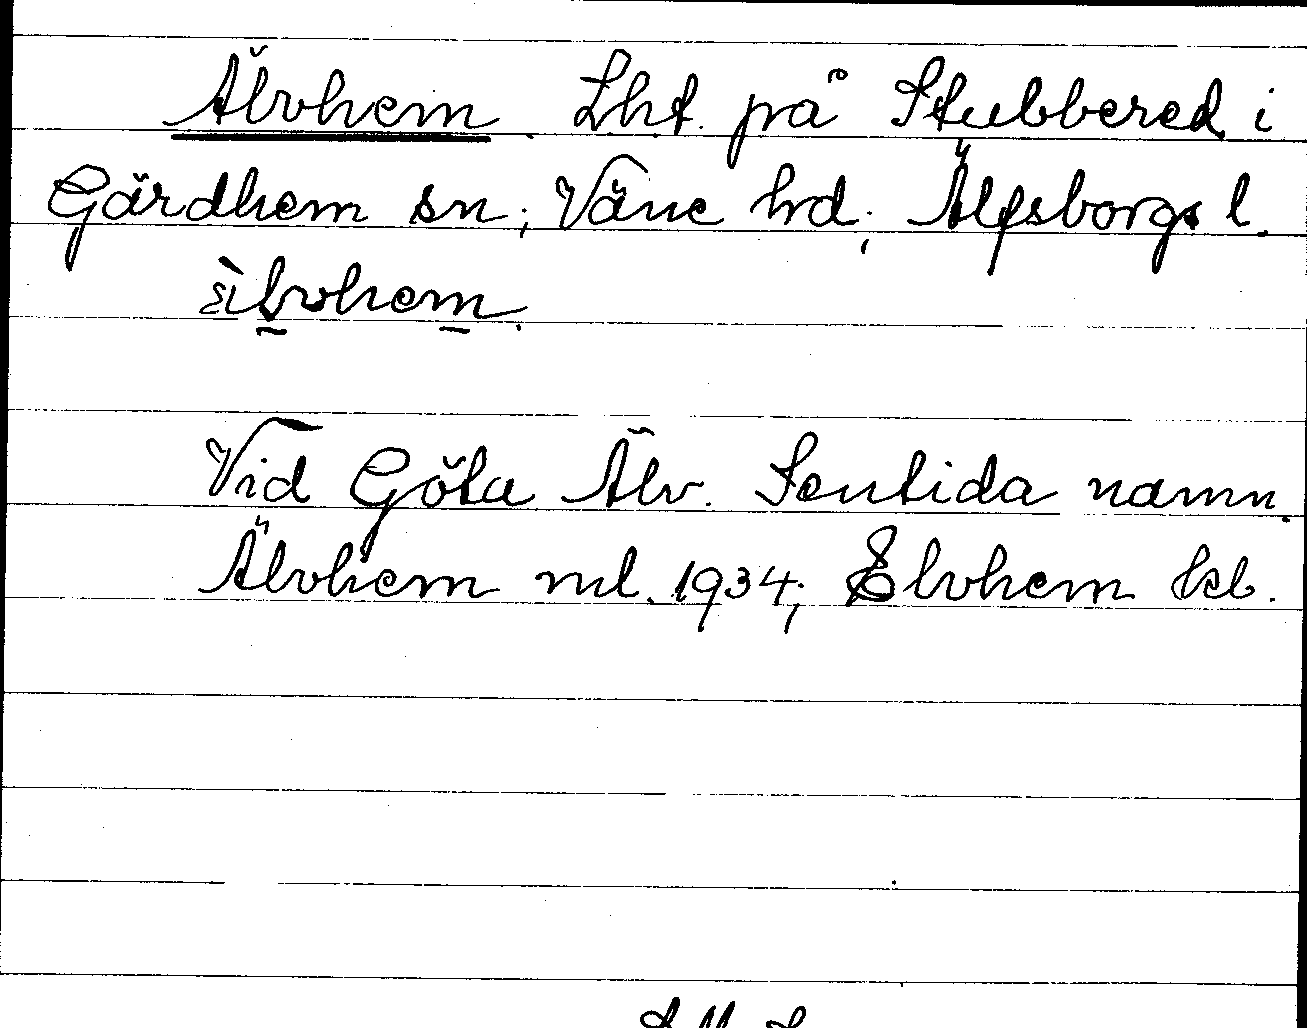 Älvhem. Lht. på Stubbered i
Gärdhem sn; Väne hd; Älfsborgs l.
älvhem.
Vid Göta Älv. Sentida namn.
Älvhem ml. 1934; Elvhem kb.